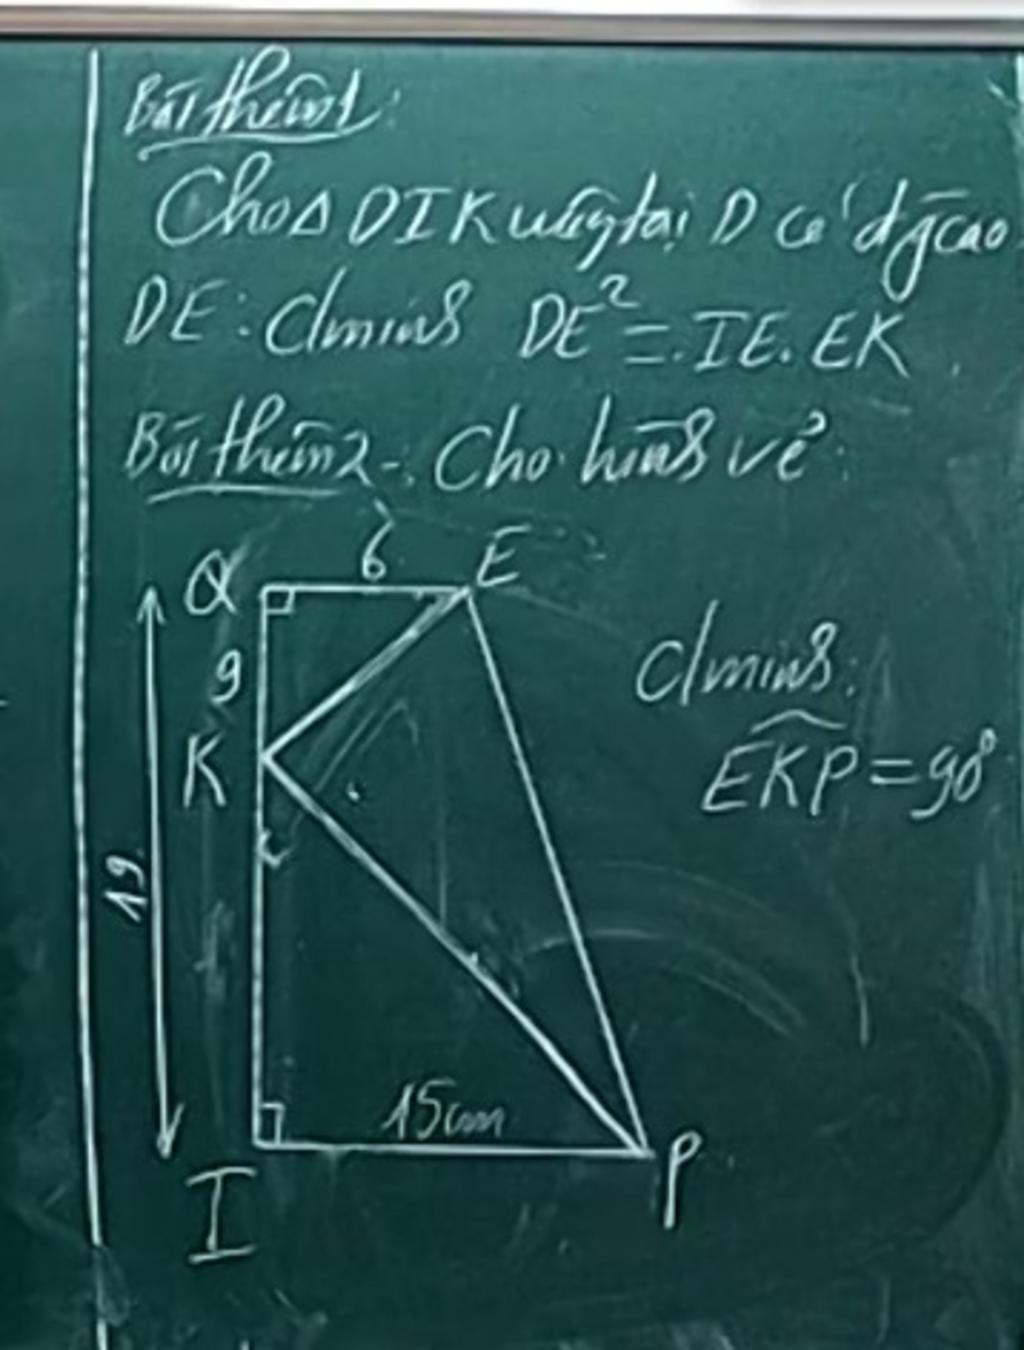 Bài thêm 1:
Cho Δ DIK vuông tại D có đg cao
DE: C/minh DE² = IE. EK.
Bài thêm 2: Cho hình vẽ:
6 E
Q
9
C/minh:
K EKP = 90°
19
15cm
I P